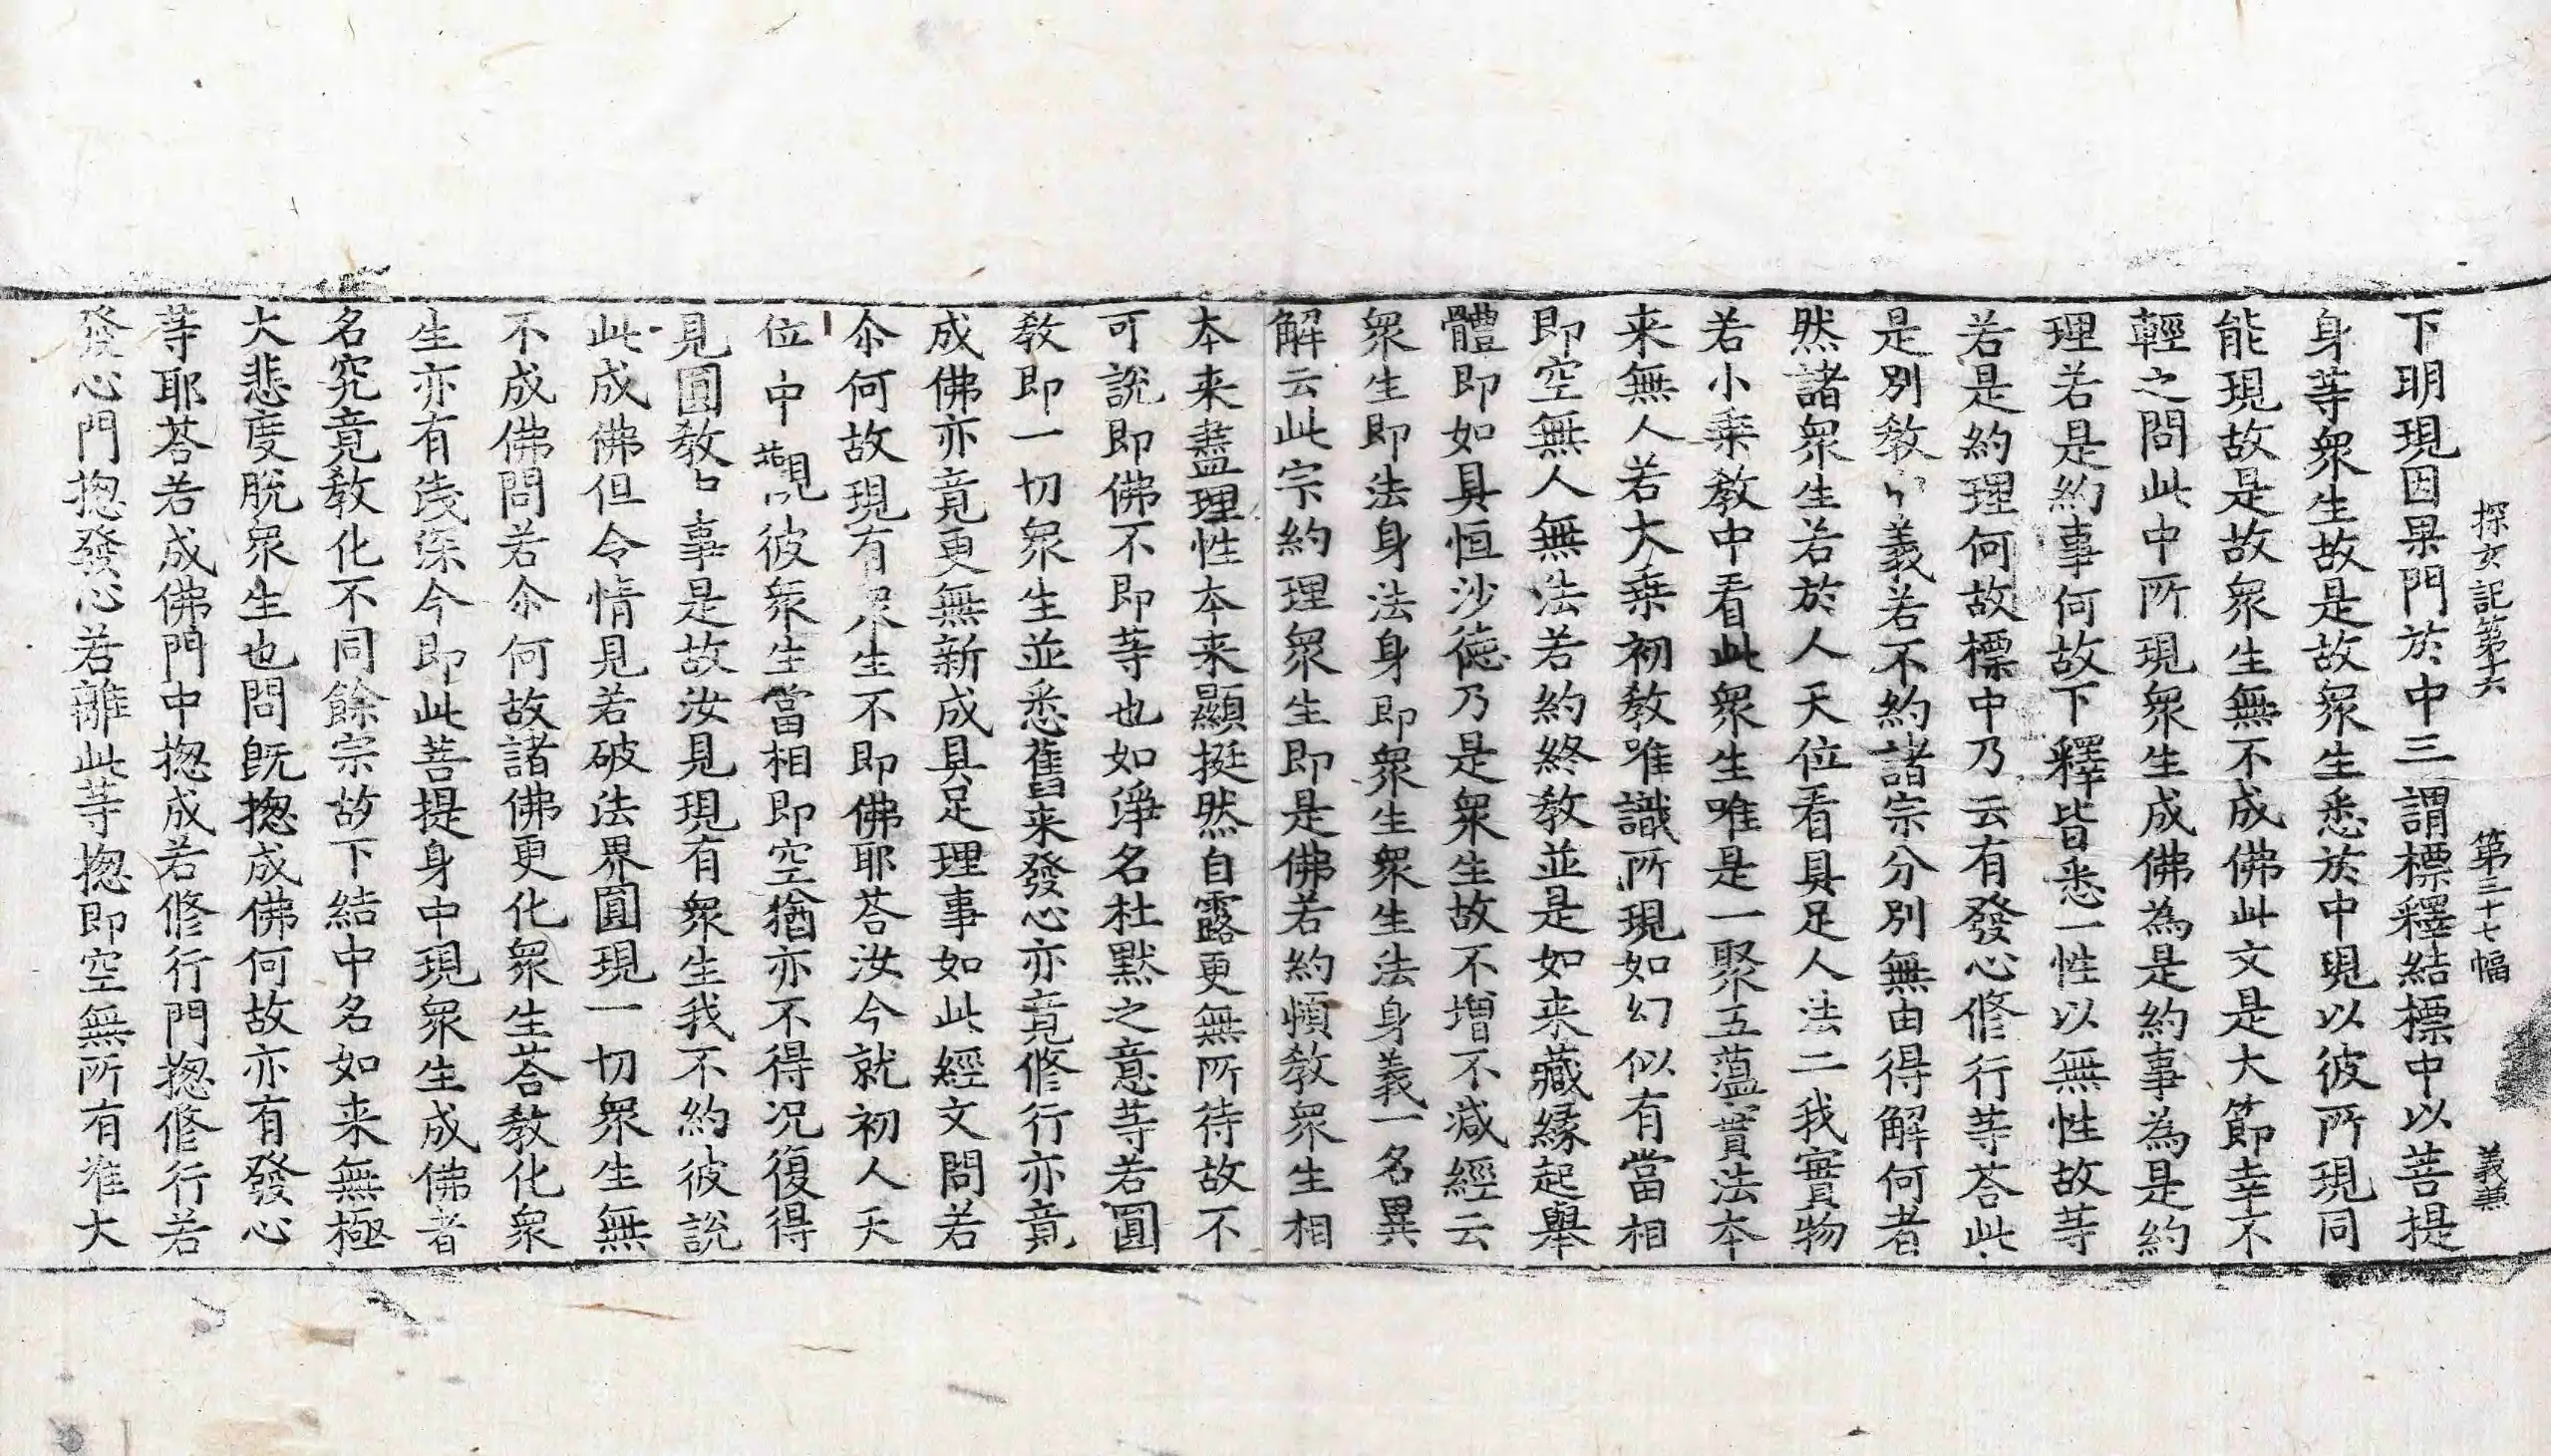 探玄記第十六　第三十七幅　義兼
下明現因果門於中三謂標釋結標中以菩提
身等衆生故是故衆生悉於中現以彼所現同
能現故是故衆生無不成佛此文是大節幸不
輕之問此中所現衆生成佛為是約事為是約
理若是約事何故下釋皆悉一性以無性故等
若是約理何故標中乃云有發心修行等荅此
是別教義若不約諸宗分別無由得解何者
然諸衆生若於人天位看具足人法二我實物
若小乗教中看此衆生唯是一聚五蕰實法本
来無人若大乗初教唯識所現如幻似有當相
即空無人無法若約終教並是如来藏縁起舉
體即如具恒沙德乃是衆生故不增不減經云
衆生即法身法身即衆生衆生法身義一名異
解云此宗約理衆生即是佛若約頓教衆生相
本来盡理性本来顯挺然自露更無所待故不
可說即佛不即等也如淨名杜黙之意等若圓
教即一切衆生並悉舊来發心亦竟修行亦竟
成佛亦竟更無新成具足理事如此經文問若
尒何故現有衆生不即佛耶荅汝今就初人天
位中觀彼衆生當相即空猶亦不得况復得
見圓教事是故汝見現有衆生我不約彼說
此成佛但令情見若破法界圓現一切衆生無
不成佛問若尒何故諸佛更化衆生荅教化衆
生亦有淺深今即此菩提身中現衆生成佛者
名究竟教化不同餘宗故下結中名如来無極
大悲度脫衆生也問旣揔成佛何故亦有發心
等耶荅若成佛門中揔成若修行門揔修行若
發心門揔發心若離此等揔即空無所有准大